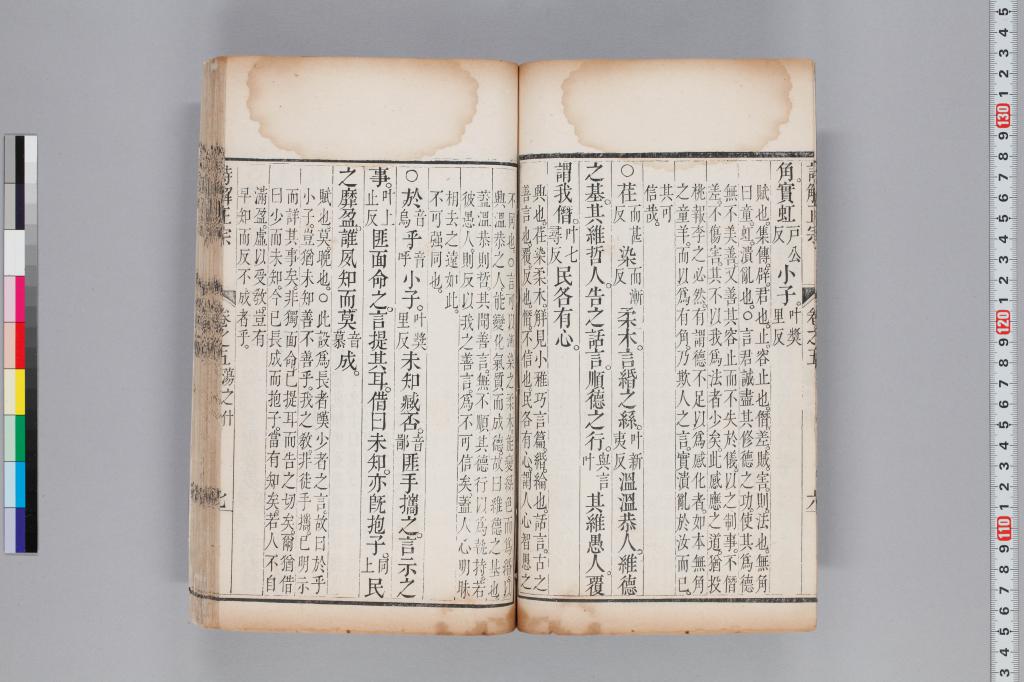 角。實虹戶公反小子。叶奬里反
賦也集傳辟君也止容止也僭差賊害則法也無角
曰童虹潰亂也。○言君誠盡其修德之功使其爲德
無不美善又善其容止而不失於儀以之制事不僭
差。不傷害其不以我爲法者少矣此感應之道猶投
桃報李之必然有謂德不足以爲感化者如本無角
之童羊。而以爲有角乃欺人之言實潰亂於汝而已
其可
信哉。
○荏而甚反染而漸反柔木。言緡之絲。叶新夷反溫溫恭人。維德
之基。其維哲人。告之話言。順德之行。與言叶其維愚人。覆
謂我僭。叶七尋反民各有心。
興也。荏染柔木解見小雅巧言篇緡綸也。話言古之
善言也覆反也。僭不信也民各有心謂人心智愚之
不同也○言
興溫恭之人能變化氣質而成德故曰維德之基也
蓋溫恭則哲其聞善言無不順其德行以爲執持。若
彼愚人。則反以我之善言爲不可信矣蓋人心明昧
相去之遠如此。
不可强同也。
○於音烏乎音呼小子。叶奬里反未知臧否。音鄙匪手攜之。言示之
事。叶上止反匪面命之。言提其耳。借曰未知。亦旣抱子。同上民
之靡盈。誰夙知而莫音慕成。
賦也莫晚也。○此設爲長者嘆少者之言故曰於乎
小子豈猶未知善不善乎。我之敎非徒手攜已明示
而詳其事矣非獨面命已提耳而告之切矣爾猶借
曰少而未知今已長成而抱子當有知矣若人不自
滿盈虛以受敎豈有
早知而反不成者乎。
詩解正宗 卷之五蕩之什 七